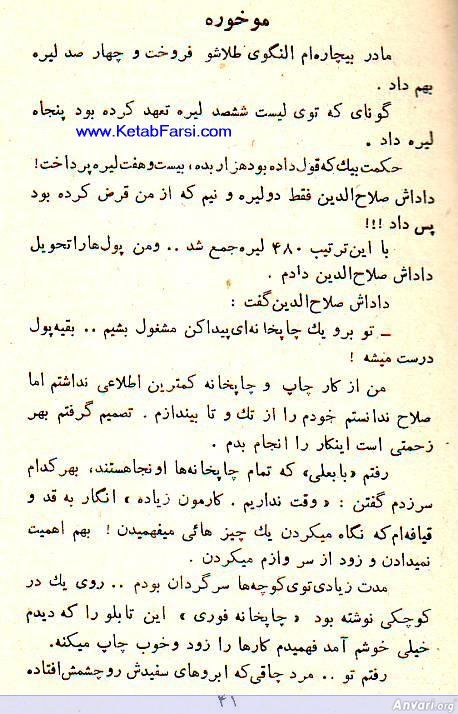 موخوره
مادر بیچاره‌ام النگوی طلاشو فروخت و چهار صد لیره
بهم داد .
گونای که توی لیست ششصد لیره تعهد کرده بود پنجاه
لیره داد .
www.KetabFarsi.com
حکمت بیك که قول داده بود هزار بده، بیست و هفت لیره پرداخت!
داداش صلاح‌الدین فقط دولیره و نیم که از من قرض کرده بود
پس داد !!!
با این ترتیب ۴۸۰ لیره جمع شد .. و من پول‌ها را تحویل
داداش صلاح‌الدین دادم .
داداش صلاح‌الدین گفت :
ــ تو برو یك چاپخانه‌ای پیدا کن مشغول بشیم .. بقیه پول
درست میشه !
من از کار چاپ و چاپخانه کمترین اطلاعی نداشتم اما
صلاح ندانستم خودم را از تك و تا بیندازم . تصمیم گرفتم بهر
زحمتی است اینکار را انجام بدم .
رفتم «بابعلی» که تمام چاپخانه‌ها اونجا هستند، بهر کدام
سر زدم گفتن : « وقت نداریم . کارمون زیاده » انگار به قد و
قیافه‌ام که نگاه میکردن یك چیز هائی میفهمیدن ! بهم اهمیت
نمیدادن و زود از سر وازم میکردن .
مدت زیادی توی کوچه‌ها سرگردان بودم .. روی یك در
کوچکی نوشته بود « چاپخانه فوری » این تابلو را که دیدم
خیلی خوشم آمد فهمیدم کارها را زود و خوب چاپ میکنه.
رفتم تو .. مرد چاقی که ابروهای سفیدش رو چشمش افتاده
۴۱
Anvari.org